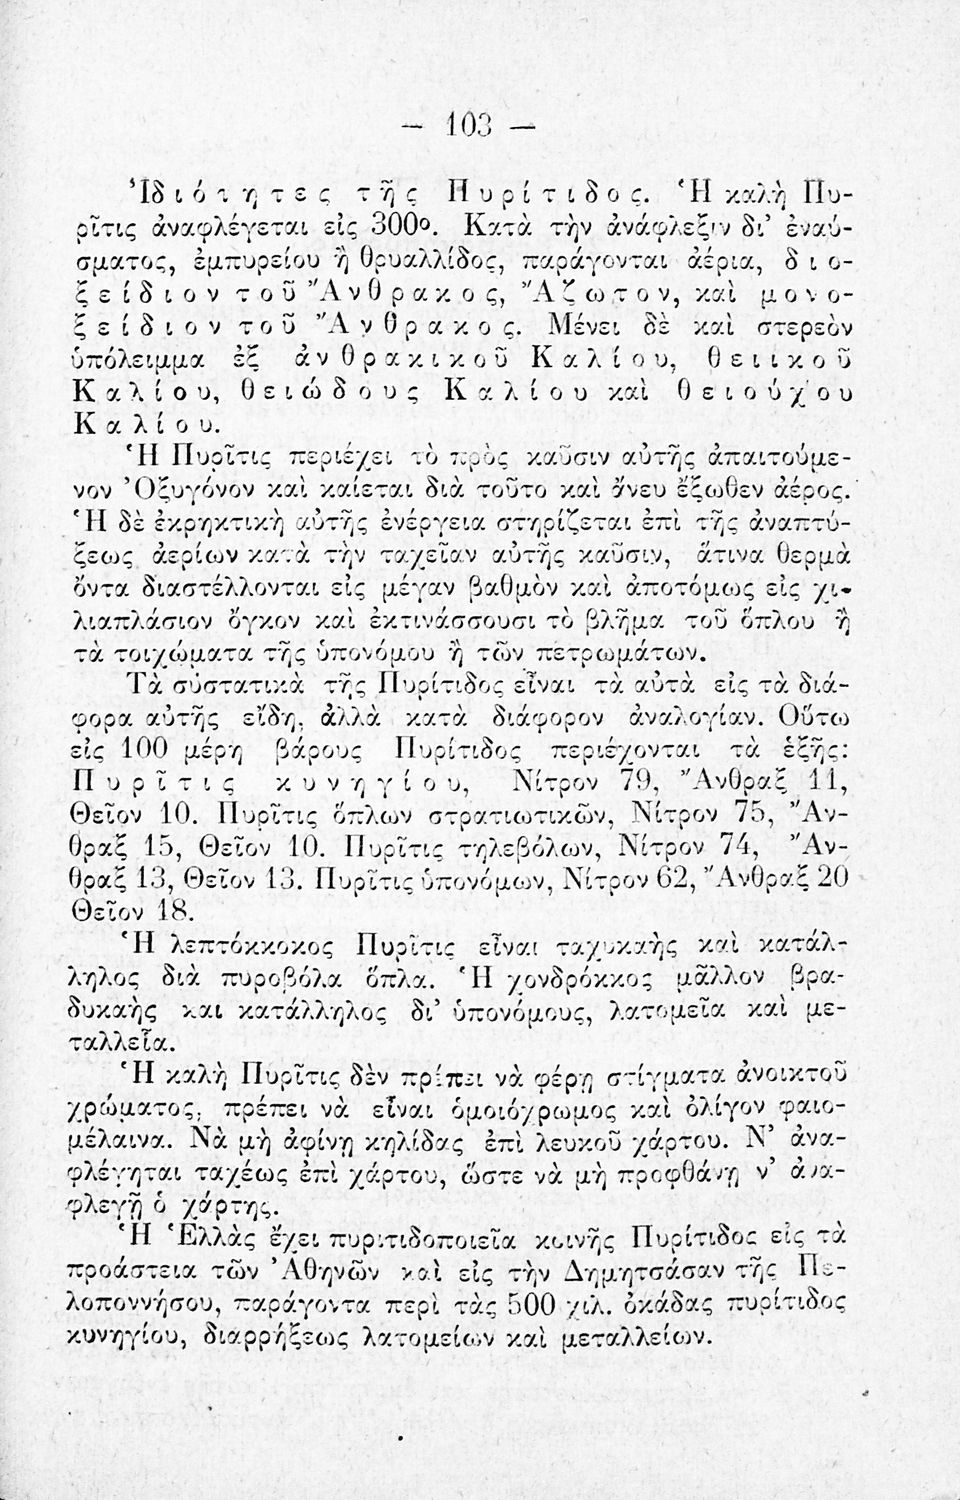 — 103 —
Ἰδιότητες τῆς Πυρίτιδος. Ἡ καλὴ Πυ-
ρῖτις ἀναφλέγεται εἰς 300ο. Κατὰ τὴν ἀνάφλεξιν δι’ ἐναύ-
σματος, ἐμπυρείου ἢ θρυαλλίδος, παράγονται ἀέρια, διο-
ξείδιον τοῦ Ἄνθρακος, Ἄζωτον, καὶ μονο-
ξείδιον τοῦ Ἄνθρακος. Μένει δὲ καὶ στερεὸν
ὑπόλειμμα ἐξ ἀνθρακικοῦ Καλίου, θειικοῦ
Καλίου, θειώδους Καλίου καὶ θειούχου
Καλίου.
Ἡ Πυρῖτις περιέχει τὸ πρὸς καῦσιν αὐτῆς ἀπαιτούμε-
νον Ὀξυγόνον καὶ καίεται διὰ τοῦτο καὶ ἄνευ ἔξωθεν ἀέρος.
Ἡ δὲ ἐκρηκτικὴ αὐτῆς ἐνέργεια στηρίζεται ἐπὶ τῆς ἀναπτύ-
ξεως ἀερίων κατὰ τὴν ταχεῖαν αὐτῆς καῦσιν, ἅτινα θερμὰ
ὄντα διαστέλλονται εἰς μέγαν βαθμὸν καὶ ἀποτόμως εἰς χι-
λιαπλάσιον ὄγκον καὶ ἐκτινάσσουσι τὸ βλῆμα τοῦ ὅπλου ἢ
τὰ τοιχώματα τῆς ὑπονόμου ἢ τῶν πετρωμάτων.
Τὰ συστατικὰ τῆς Πυρίτιδος εἶναι τὰ αὐτὰ εἰς τὰ διά-
φορα αὐτῆς εἴδη, ἀλλὰ κατὰ διάφορον ἀναλογίαν. Οὕτω
εἰς 100 μέρη βάρους Πυρίτιδος περιέχονται τὰ ἑξῆς:
Πυρῖτις κυνηγίου, Νίτρον 79, Ἄνθραξ 11,
Θεῖον 10. Πυρῖτις ὅπλων στρατιωτικῶν, Νίτρον 75, Ἄν-
θραξ 15, Θεῖον 10. Πυρῖτις τηλεβόλων, Νίτρον 74, Ἄν-
θραξ 13, Θεῖον 13. Πυρῖτις ὑπονόμων, Νίτρον 62, Ἄνθραξ 20
Θεῖον 18.
Ἡ λεπτόκκοκος Πυρῖτις εἶναι ταχυκαὴς καὶ κατάλ-
ληλος διὰ πυροβόλα ὅπλα. Ἡ χονδρόκκος μᾶλλον βρα-
δυκαὴς και κατάλληλος δι’ ὑπονόμους, λατομεῖα καὶ με-
ταλλεῖα.
Ἡ καλὴ Πυρῖτις δὲν πρέπει νὰ φέρῃ στίγματα ἀνοικτοῦ
χρώματος, πρέπει νὰ εἶναι ὁμοιόχρωμος καὶ ὀλίγον φαιο-
μέλαινα. Νὰ μὴ ἀφίνῃ κηλίδας ἐπὶ λευκοῦ χάρτου. Ν’ ἀνα-
φλέγηται ταχέως ἐπὶ χάρτου, ὥστε νὰ μὴ προφθάνῃ ν’ ἀνα-
φλεγῇ ὁ χάρτης.
Ἡ Ἑλλὰς ἔχει πυριτιδοποιεῖα κοινῆς Πυρίτιδος εἰς τὰ
προάστεια τῶν Ἀθηνῶν καὶ εἰς τὴν Δημητσάσαν τῆς Πε-
λοποννήσου, παράγοντα περὶ τὰς 500 χιλ. ὀκάδας πυρίτιδος
κυνηγίου, διαρρήξεως λατομείων καὶ μεταλλείων.